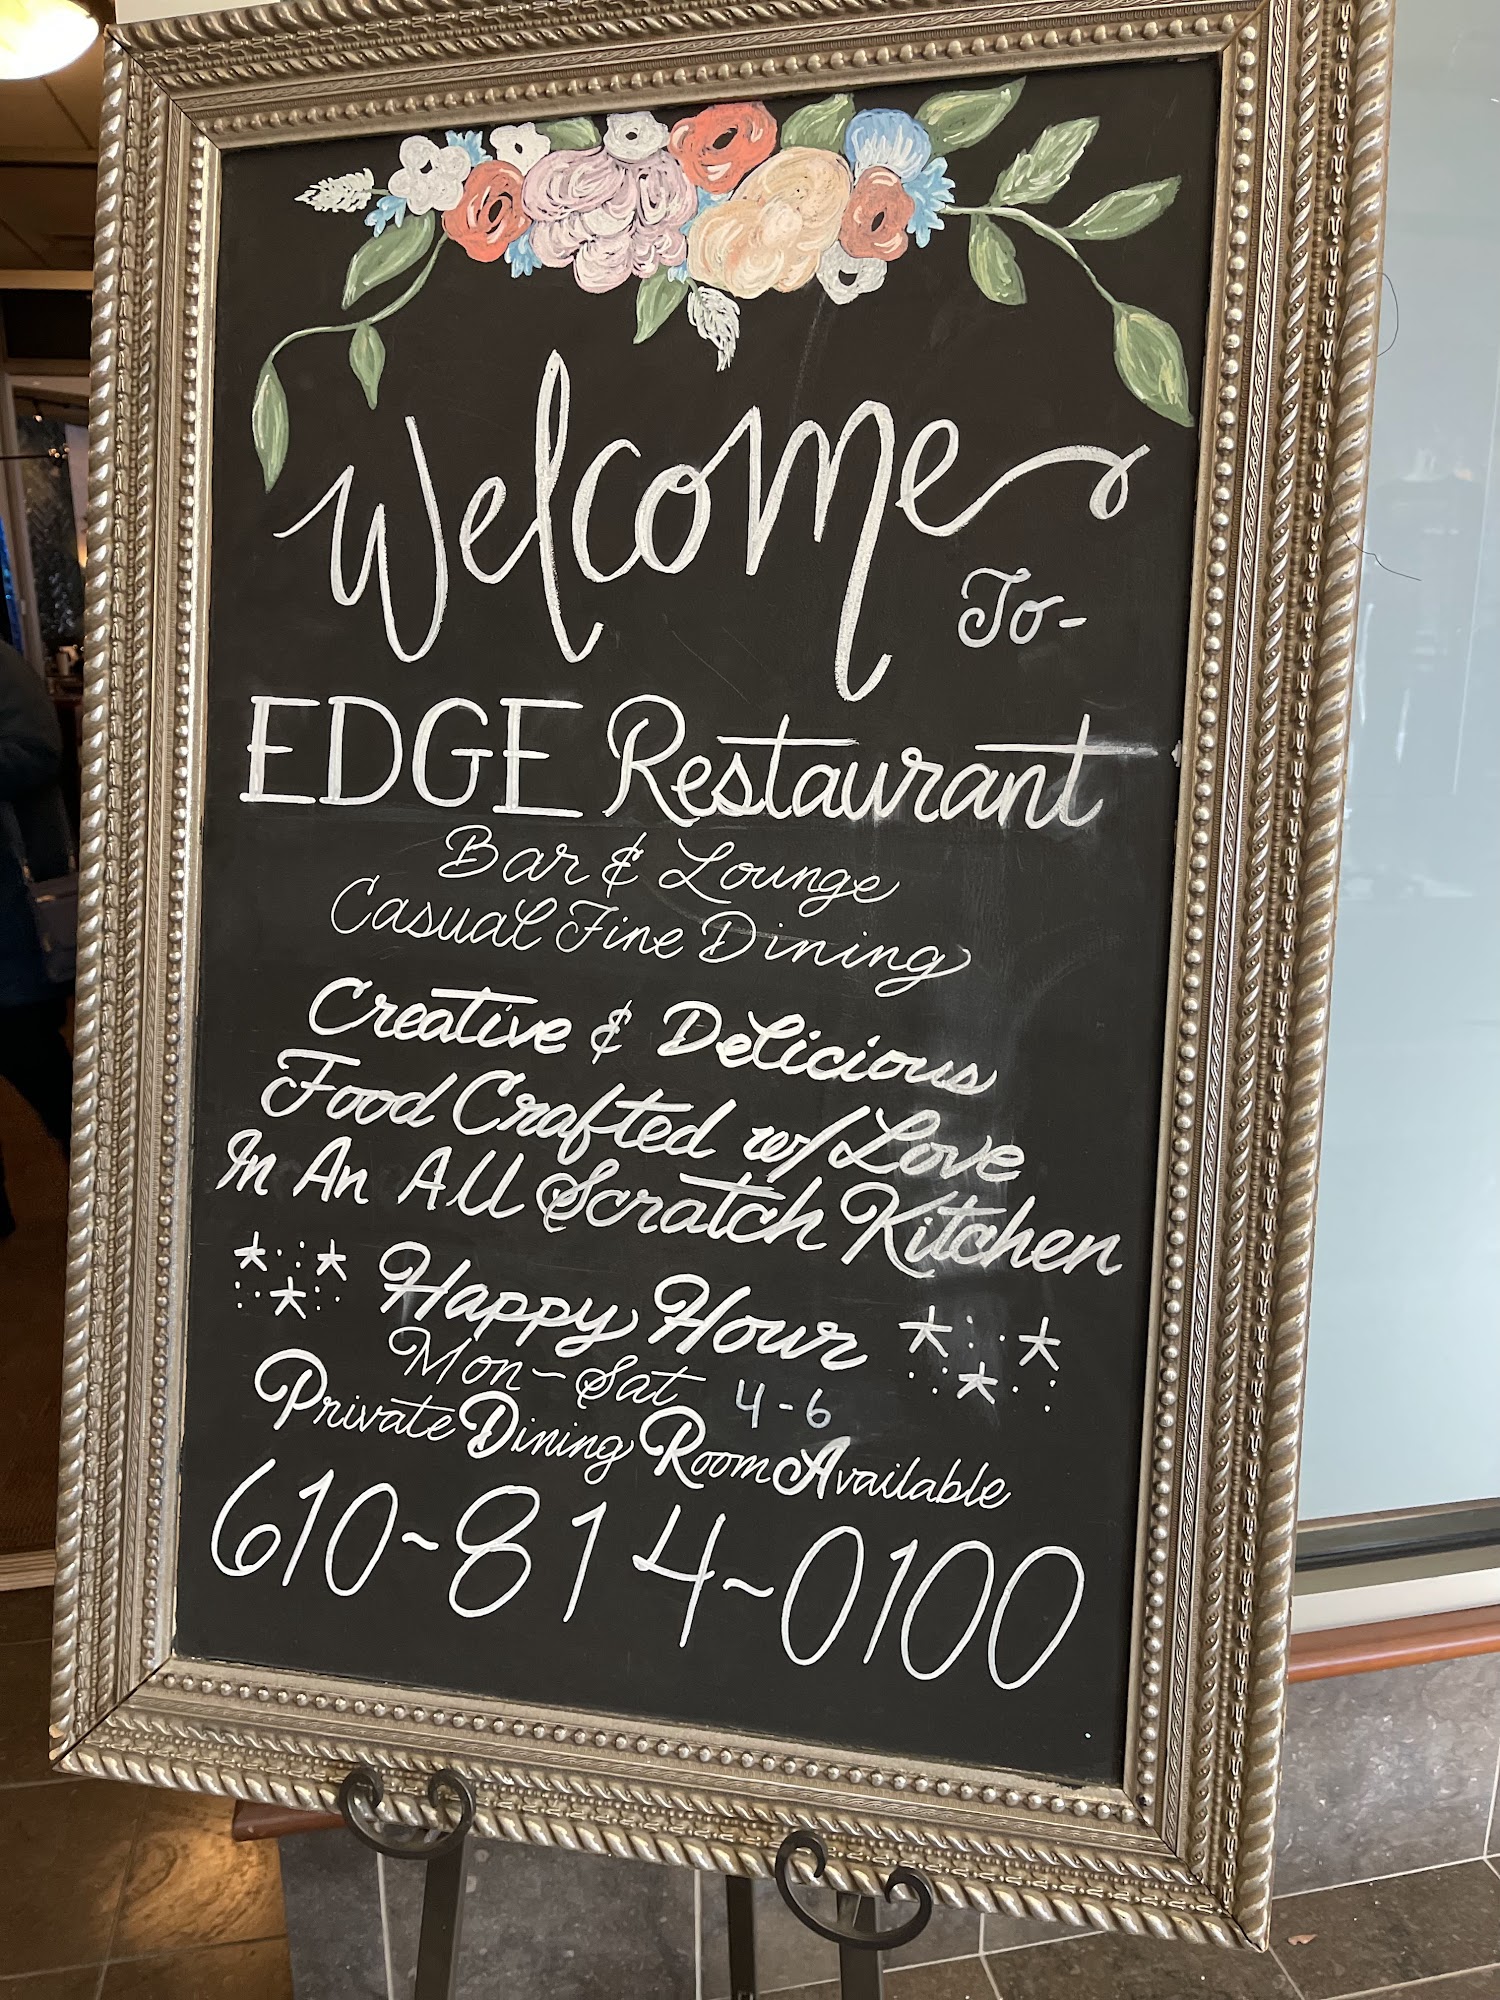 Welcome
To-
EDGE Restaurant
Bar & Lounge
Casual Fine Dining
Creative & Delicious
Food Crafted w/ Love
In An All Scratch Kitchen
Happy Hour
Mon-Sat 4-6
Private Dining Room Available
610-814-0100